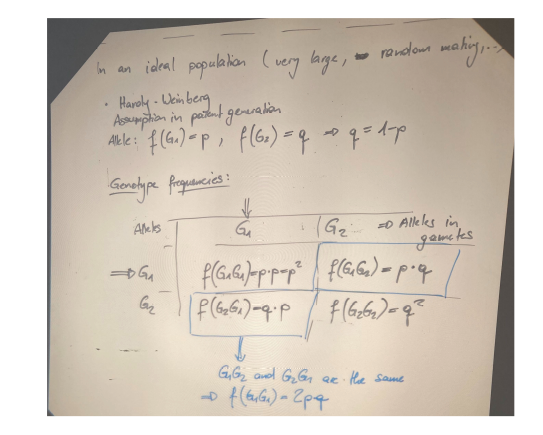 In an ideal population (very large, random mating,...)
· Hardy-Weinberg
Assumption in parent generation
Allele: f(G₁)=p, f(G₂)=q ⇒ q=1-p
Genotype frequencies:
Alleles G₁ G₂ ⇒ Alleles in gametes
⇒ G₁ f(G₁G₁)=p·p=p² f(G₁G₂)=p·q
G₂ f(G₂G₁)=q·p f(G₂G₂)=q²
G₁G₂ and G₂G₁ are the same
⇒ f(G₁G₁)=2pq